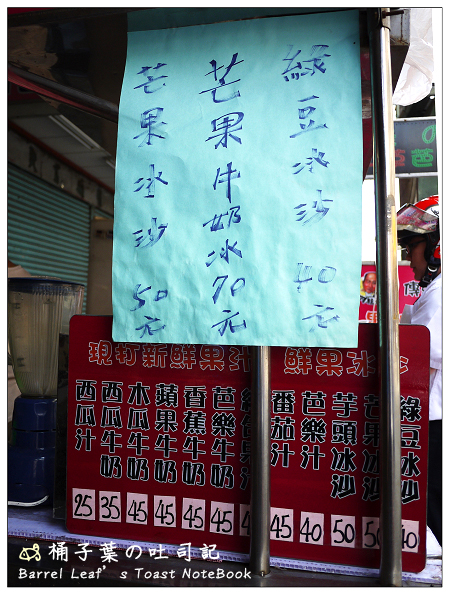 綠豆冰沙 40元
芒果牛奶冰 70元
芒果冰沙 50元
現打新鮮果汁 鮮果冰
西瓜汁 25
西瓜牛奶 35
木瓜牛奶 45
蘋果牛奶 45
香蕉牛奶 45
芭樂牛奶 45
番茄汁 45
芭樂汁 40
芋頭冰沙 50
芒果冰沙 50
綠豆冰沙 40
桶子葉の吐司記
Barrel Leaf's Toast NoteBook